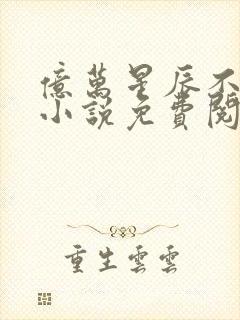 億萬星辰不
小說免費閱
重生雲雲